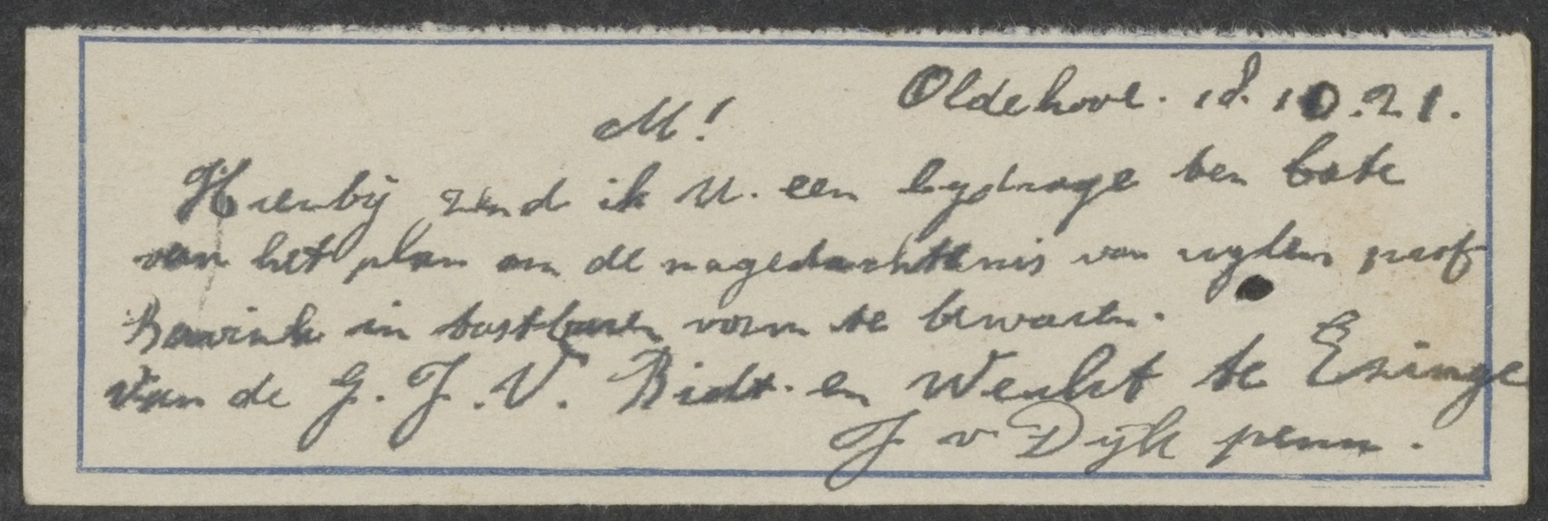 Oldehove. 18.10.21.
M!
Hierbij zend ik U. een bydrage ten bate
van het plan om de nagedachtenis van wylen prof
Bavink in tastbaren vorm te bewaren.
Van de G. J. V. Bidt en Werkt te Ezinge
J v Dyk penn.